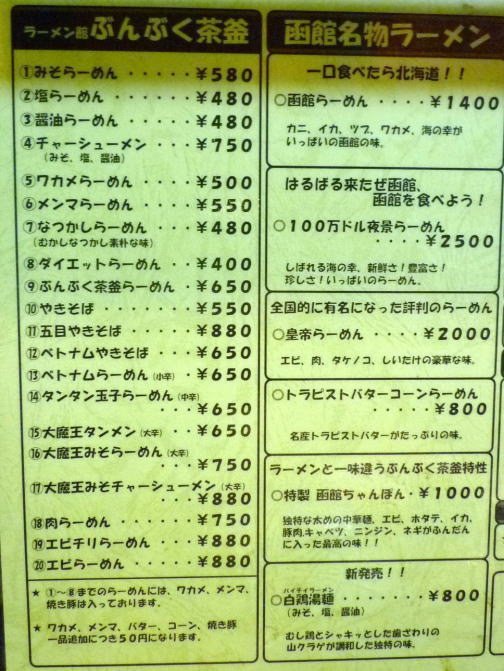 ラーメン館 ぶんぶく茶釜
①みそらーめん ・・・・・￥580
②塩らーめん ・・・・・￥480
③醤油らーめん ・・・・￥480
④チャーシューメン ・・・￥750
（みそ、塩、醤油）
⑤ワカメらーめん ・・・￥500
⑥メンマらーめん ・・・￥550
⑦なつかしらーめん ・・￥480
（むかしなつかし素朴な味）
⑧ダイエットらーめん ・￥400
⑨ぶんぶく茶釜らーめん・￥650
⑩やきそば ・・・・・￥550
⑪五目やきそば ・・・・￥880
⑫ベトナムやきそば ・・￥650
⑬ベトナムらーめん（小辛）・￥650
⑭タンタン玉子らーめん（中辛）
・・・￥650
⑮大魔王タンメン（大辛）・・￥650
⑯大魔王みそらーめん（大辛）
・・・￥750
⑰大魔王みそチャーシューメン（大辛）
・・・￥880
⑱肉らーめん ・・・・・￥750
⑲エビチリらーめん ・・￥880
⑳エビらーめん ・・・・￥880
★ ①〜⑧までのらーめんには、ワカメ、メンマ、
焼き豚は入っております。
★ ワカメ、メンマ、バター、コーン、焼き豚
一品追加につき50円になります。
函館名物ラーメン
一口食べたら北海道！！
○函館らーめん ・・・・￥1400
カニ、イカ、ツブ、ワカメ、海の幸が
いっぱいの函館の味。
はるばる来たぜ函館、
函館を食べよう！
○100万ドル夜景らーめん
・・・・￥2500
しばれる海の幸、新鮮さ！豊富さ！
珍しさ！いっぱいのらーめん。
全国的に有名になった評判のらーめん
○皇帝らーめん ・・・・￥2000
エビ、肉、タケノコ、しいたけの豪華な味。
○トラピストバターコーンらーめん
・・・・・￥800
名産トラピストバターがたっぷりの味。
ラーメンと一味違うぶんぶく茶釜特性
○特製 函館ちゃんぽん・￥1000
独特な太めの中華麺、エビ、ホタテ、イカ、
豚肉、キャベツ、ニンジン、ネギがふんだん
に入った最高の味！！
新発売！！
パイチイラーメン
○白鶏湯麺 ・・・・・・・￥800
（みそ、塩、醤油）
むし鶏とシャキッとした歯ざわりの
山クラゲが調和した独特の味。